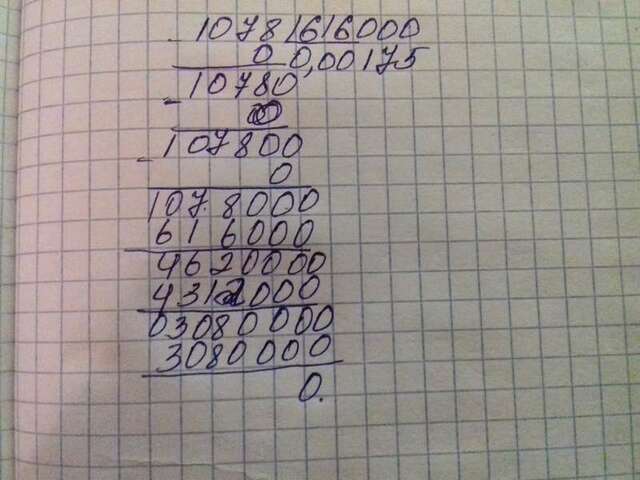 - 1078 | 616000
0 0,00175
- 10780
0
- 107800
0
1078000
616000
4620000
4312000
03080000
3080000
0.